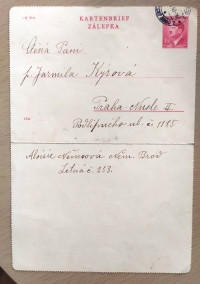 KARTENBRIEF
ZÁLEPKA
Ctěná Paní
p. Jarmila Kýsová
Praha Nusle II.
Podlipného ul. č. 1185
Aloisie Němcová Něm. Brod
Letná č. 253.